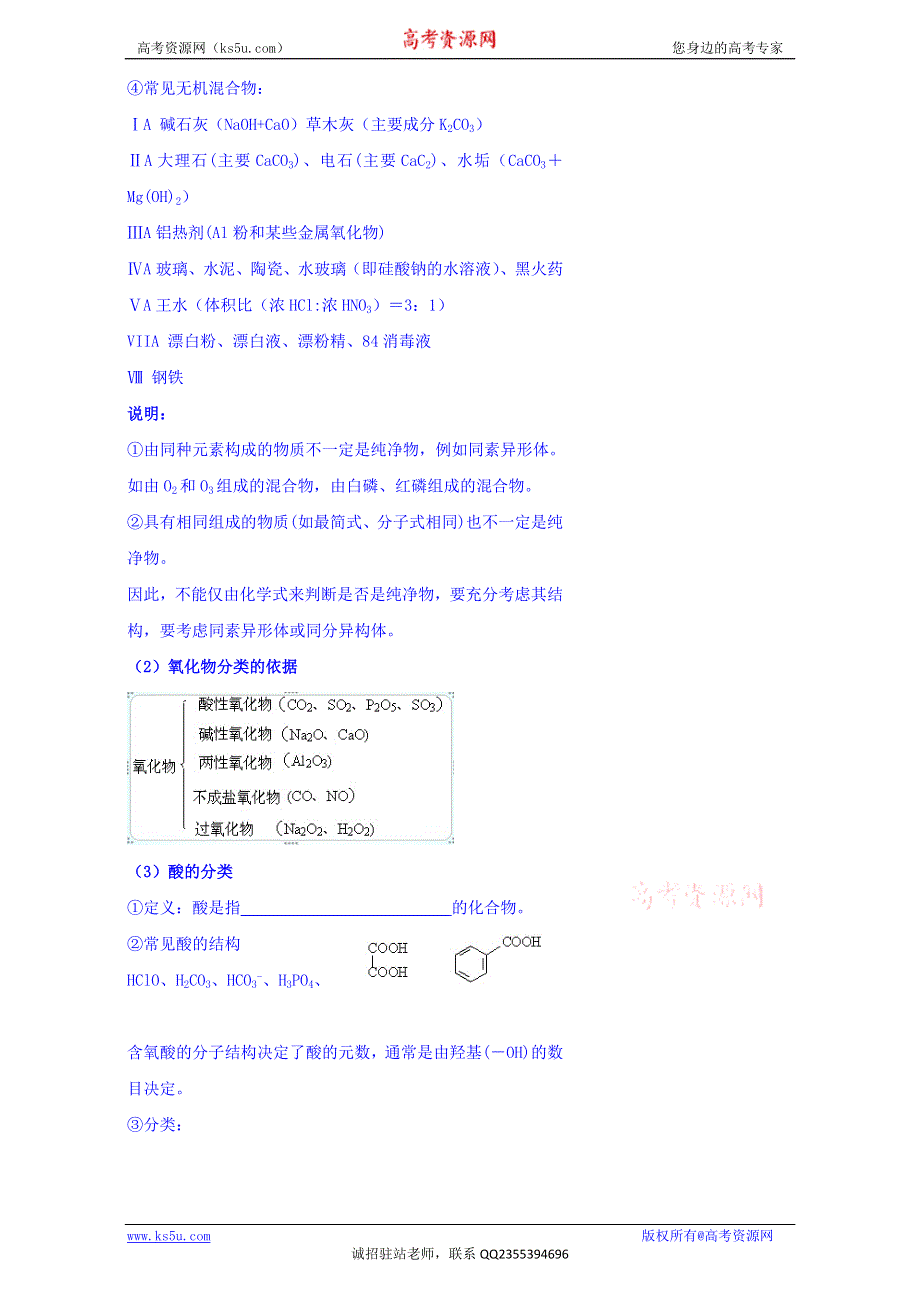 高考资源网（ks5u.com） 高考资源网 您身边的高考专家
④常见无机混合物：
ⅠA 碱石灰（NaOH+CaO）草木灰（主要成分K₂CO₃）
ⅡA大理石(主要CaCO₃)、电石(主要CaC₂)、水垢（CaCO₃＋
Mg(OH)₂）
ⅢA铝热剂(Al粉和某些金属氧化物)
ⅣA玻璃、水泥、陶瓷、水玻璃（即硅酸钠的水溶液）、黑火药
ⅤA王水（体积比（浓HCl:浓HNO₃）＝3：1）
VIIA 漂白粉、漂白液、漂粉精、84消毒液
Ⅷ 钢铁
说明：
①由同种元素构成的物质不一定是纯净物，例如同素异形体。
如由O₂和O₃组成的混合物，由白磷、红磷组成的混合物。
②具有相同组成的物质(如最简式、分子式相同)也不一定是纯
净物。
因此，不能仅由化学式来判断是否是纯净物，要充分考虑其结
构，要考虑同素异形体或同分异构体。
（2）氧化物分类的依据
氧化物
酸性氧化物（CO₂、SO₂、P₂O₅、SO₃）
碱性氧化物（Na₂O、CaO）
两性氧化物（Al₂O₃）
不成盐氧化物（CO、NO）
过氧化物 （Na₂O₂、H₂O₂）
（3）酸的分类
高考资源网
①定义：酸是指__________________________的化合物。
②常见酸的结构
COOH
COOH
COOH
HClO、H₂CO₃、HCO₃⁻、H₃PO₄、
含氧酸的分子结构决定了酸的元数，通常是由羟基(－OH)的数
目决定。
③分类：
www.ks5u.com 版权所有@高考资源网
诚招驻站老师，联系QQ2355394696